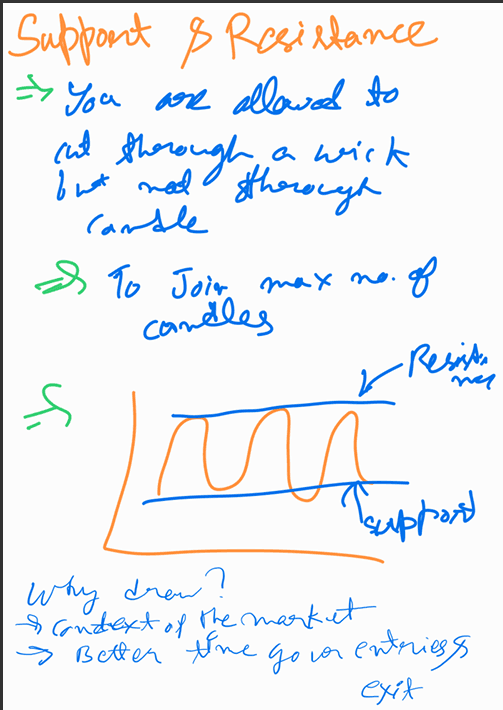 Support & Resistance
⇒ You are allowed to
cut thorough a wick
but not thorough
candle
⇒ To Join max no. of
candles
⇒
Resista
nce
support
Why draw?
→ context of the market
→ Better time your entries &
exit